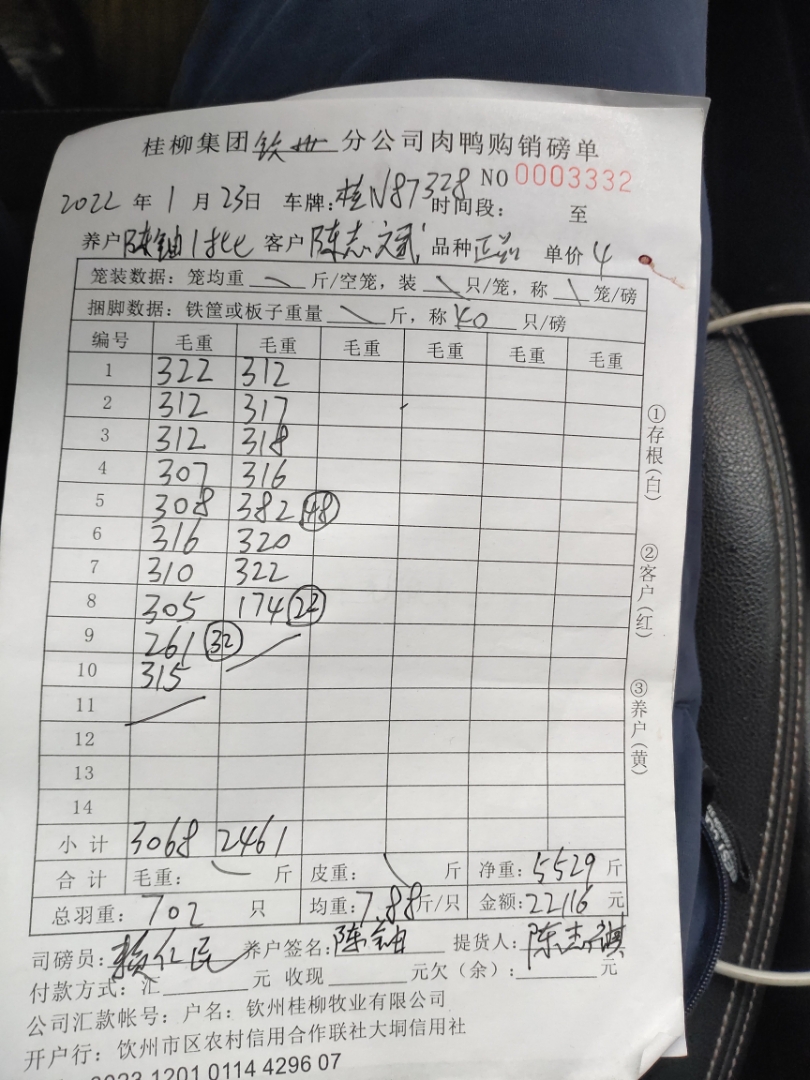 桂柳集团钦州分公司肉鸭购销磅单
NO 0003332
2022 年 1 月 23 日 车牌: 桂N87328 时间段: 至
养户 陈铀 客户 陈志斌 品种 正品 单价 4
笼装数据: 笼均重 \ 斤/空笼, 装 \ 只/笼, 称 \ 笼/磅
捆脚数据: 铁筐或板子重量 \ 斤, 称 40 只/磅
编号 毛重 毛重 毛重 毛重 毛重 毛重
1 322 312
2 312 317
3 312 318
4 307 316
5 308 382 48
6 316 320
7 310 322
8 305 174 22
9 261 32
10 315
11
12
13
14
小计 3068 2461
合计 毛重: 斤 皮重: \ 斤 净重: 5529 斤
总羽重: 702 只 均重: 7.88 斤/只 金额: 22116 元
司磅员: 赖仁民 养户签名: 陈铀 提货人: 陈志
付款方式: 汇 元 收现 元欠(余): 元
公司汇款帐号: 户名: 钦州桂柳牧业有限公司
开户行: 饮州市区农村信用合作联社大垌信用社
1201 0114 4296 07
①存根(白)
②客户(红)
③养户(黄)